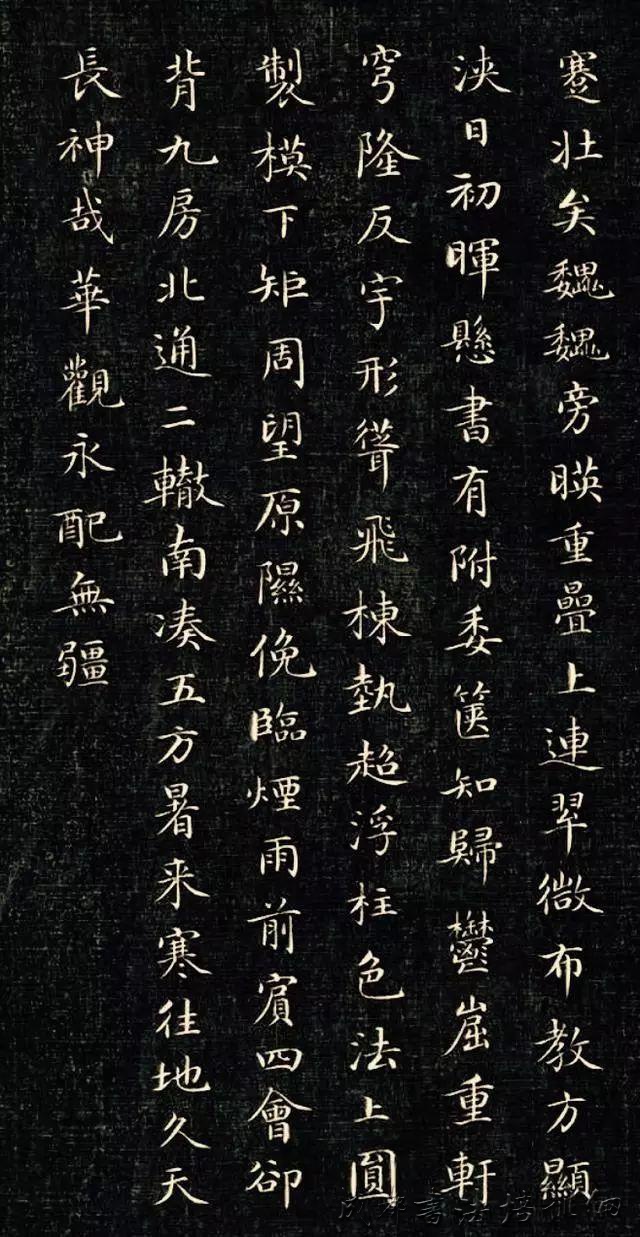 蹇壯矣魏魏旁暎重疊上連翠微布教方顯
浹日初暉懸書有附委篋知歸鬱崫重軒
穹隆反宇形聳飛棟埶超浮柱色法上圓
製模下矩周望原隰俛臨煙雨前賓四會卻
背九房北通二轍南凑五方暑来寒往地久天
長神哉華觀永配無疆